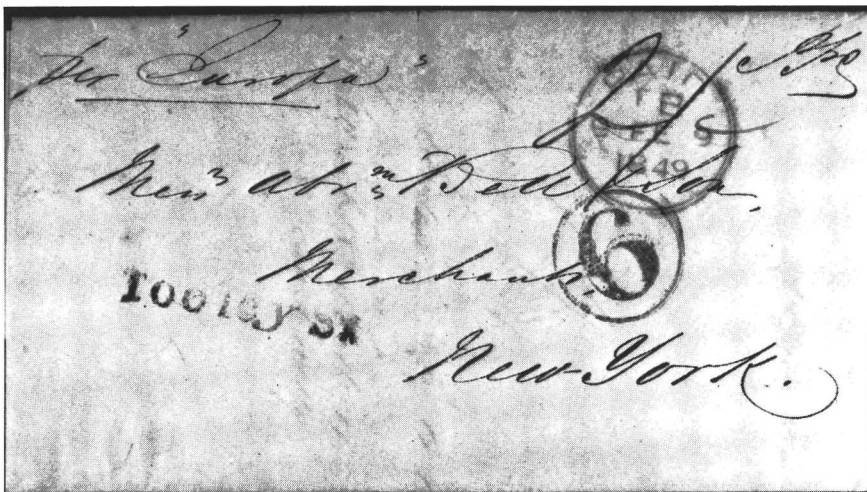 per "Europa"
PAID
FE 9
1849
Mess^rs Abr^m Bell & Son,
6
Merchants,
Tooley St
New York.